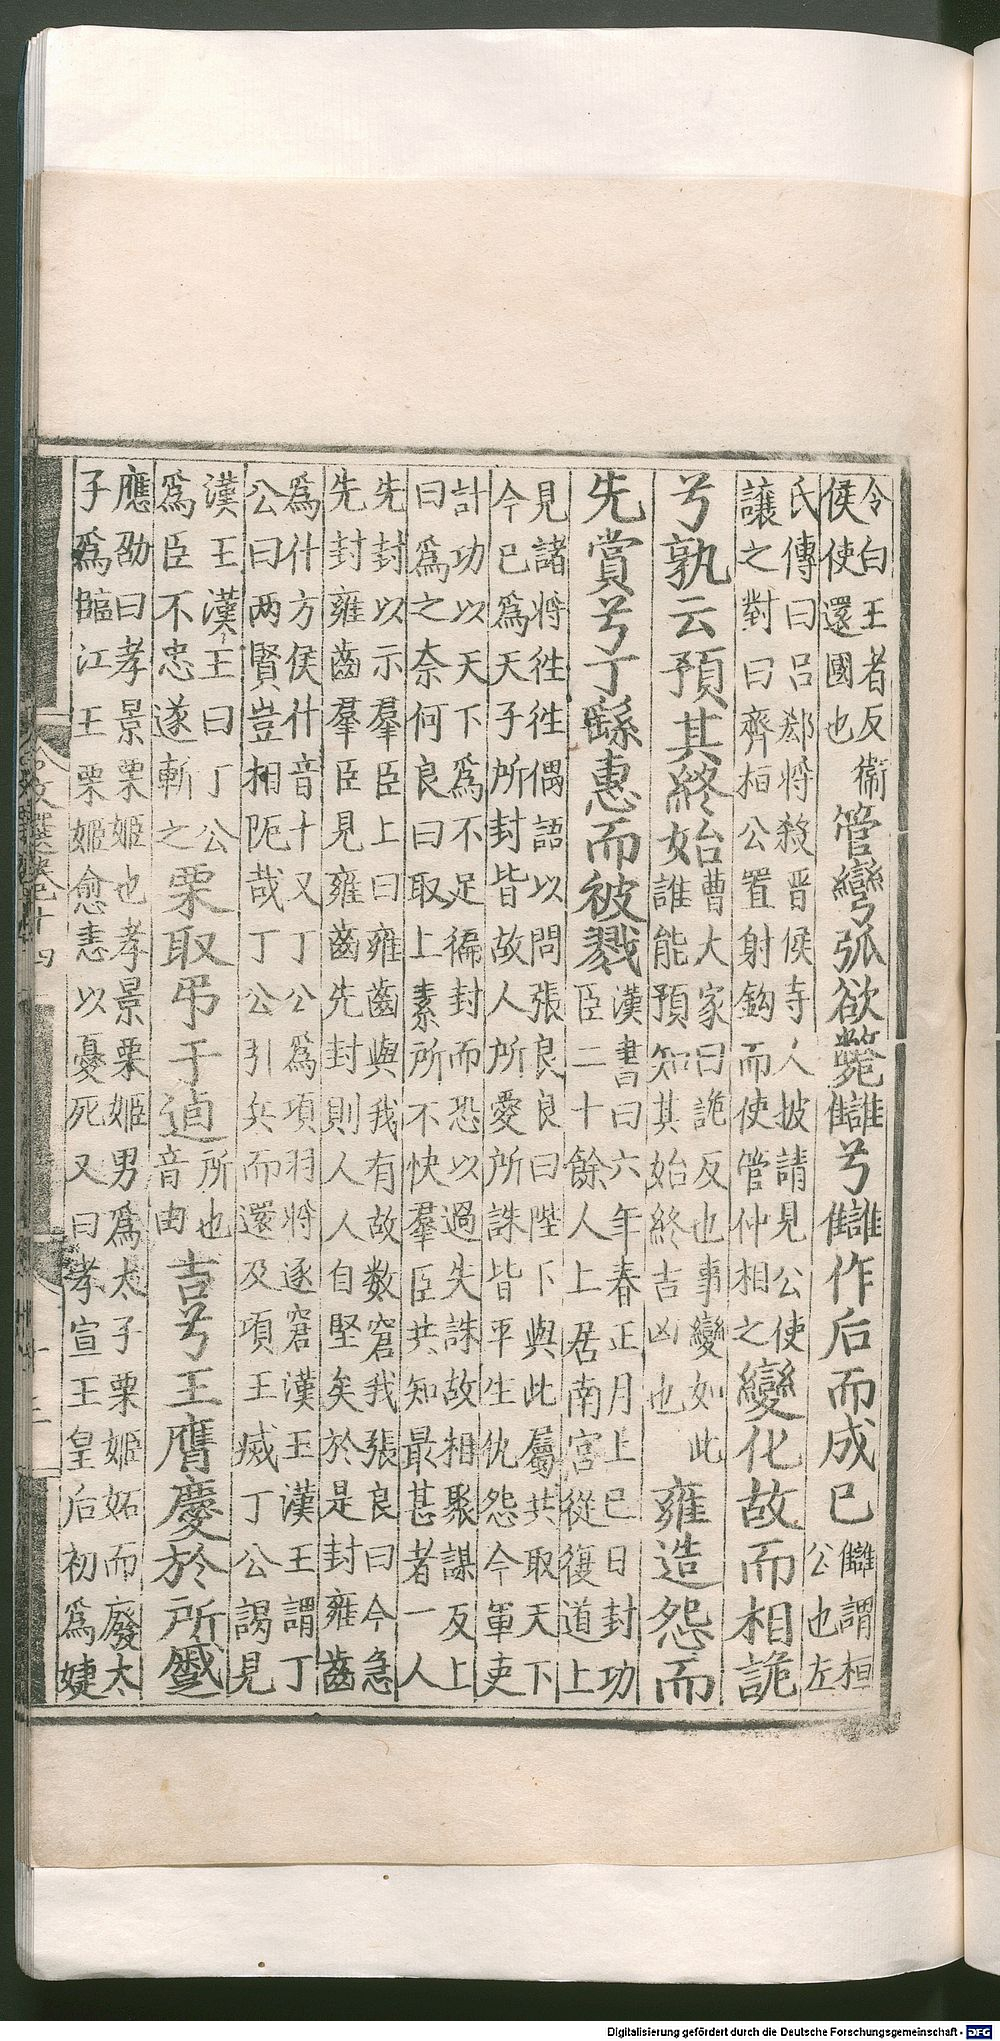 令白王者反衞
侯使還國也
管彎弧欲斃讎兮讎作后而成已
讎謂桓
公也左
氏傳曰吕郄將殺晋侯寺人披請見公使
讓之對曰齊桓公置射鈎而使管仲相之
變化故而相詭
兮孰云預其終始
曹大家曰詭反也事變如此
誰能預知其始終吉凶也
雍造怨而
先賞兮丁繇惠而被戮
漢書曰六年春正月上已日封功
臣二十餘人上居南宮從復道上
見諸將徃徃偶語以問張良良曰陛下與此屬共取天下
今已爲天子所封皆故人所愛所誅皆平生仇怨今軍吏
計功以天下爲不足徧封而恐以過失誅故相聚謀反上
曰爲之奈何良曰取上素所不快羣臣共知最甚者一人
先封以示羣臣上曰雍齒與我有故数窘我張良曰今急
先封雍齒羣臣見雍齒先封則人人自堅矣於是封雍齒
爲什方侯什音十又丁公爲項羽將逐窘漢王漢王謂丁
公曰两賢豈相阨哉丁公引兵而還及項王烕丁公謁見
漢王漢王曰丁公
爲臣不忠遂斬之
栗取弔于逌
所也
音由
吉兮王膺慶於所慼
應劭曰孝景栗姬也孝景栗姬男爲太子栗姬妬而廢太
子爲臨江王栗姬愈恚以憂死又曰孝宣王皇后初爲婕
Digitalisierung gefördert durch die Deutsche Forschungsgemeinschaft - DFG